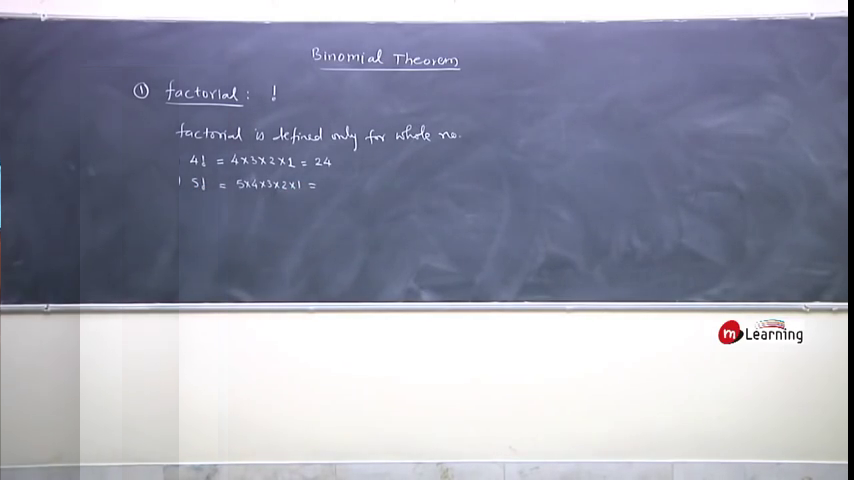 Binomial Theorem
① factorial : !
factorial is defined only for whole no.
4! = 4×3×2×1 = 24
5! = 5×4×3×2×1 =
m Learning